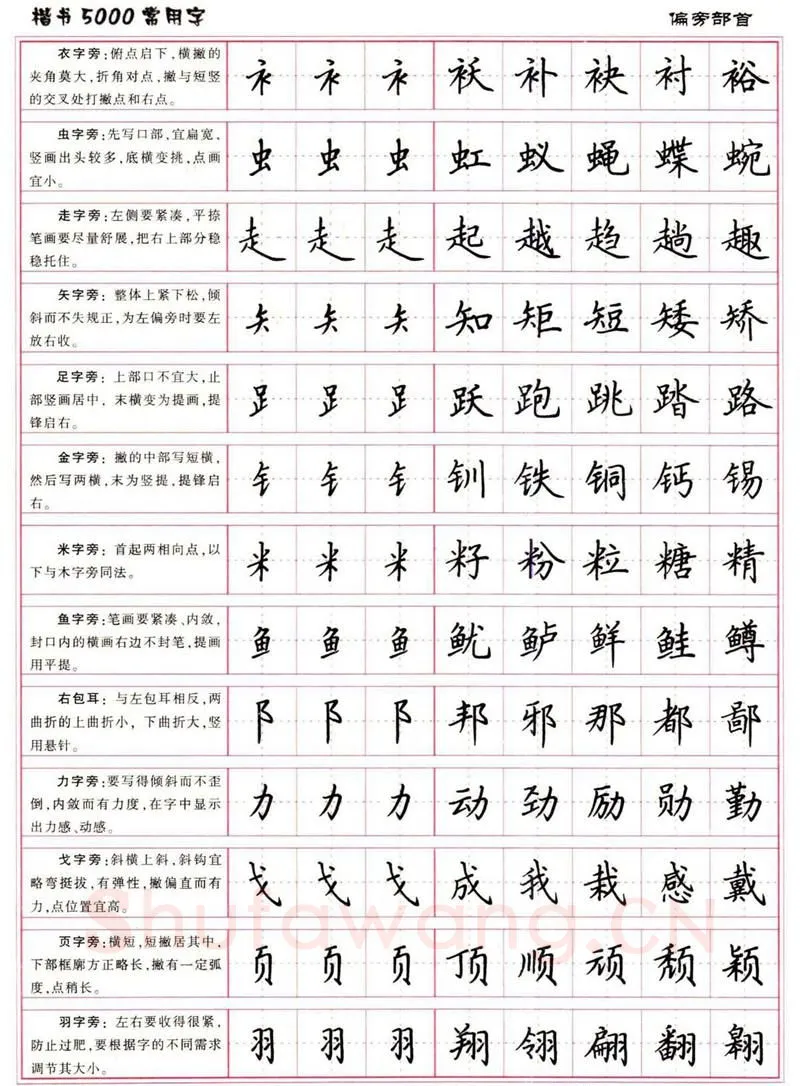 楷书5000常用字
偏旁部首
衣字旁：俯点启下，横撇的
夹角莫大，折角对点，撇与短竖
的交叉处打撇点和右点。
衤 衤 衤 袄 补 袂 衬 裕
虫字旁：先写口部，宜扁宽，
竖画出头较多，底横变挑，点画
宜小。
虫 虫 虫 虹 蚁 蝇 蝶 蜿
走字旁：左侧要紧凑，平捺
笔画要尽量舒展，把右上部分稳
稳托住。
走 走 走 起 越 趋 趟 趣
矢字旁：整体上紧下松，倾
斜而不失规正，为左偏旁时要左
放右收。
矢 矢 矢 知 矩 短 矮 矫
足字旁：上部口不宜大，止
部竖画居中，末横变为提画，提
锋启右。
𧾷 𧾷 𧾷 跃 跑 跳 踏 路
金字旁：撇的中部写短横，
然后写两横，末为竖提，提锋启
右。
钅 钅 钅 钏 铁 铜 钙 锡
米字旁：首起两相向点，以
下与木字旁同法。
米 米 米 籽 粉 粒 糖 精
鱼字旁：笔画要紧凑、内敛，
封口内的横画右边不封笔，提画
用平提。
鱼 鱼 鱼 鱿 鲈 鲜 鲑 鳟
右包耳：与左包耳相反，两
曲折的上曲折小，下曲折大，竖
用悬针。
阝 阝 阝 邦 邪 那 都 鄙
力字旁：要写得倾斜而不歪
倒，内敛而有力度，在字中显示
出力感、动感。
力 力 力 动 劲 励 勋 勤
戈字旁：斜横上斜，斜钩宜
略弯挺拔，有弹性，撇偏直而有
力，点位置宜高。
戈 戈 戈 成 我 栽 感 戴
页字旁：横短，短撇居其中，
下部框廓方正略长，撇有一定弧
度，点稍长。
页 页 页 顶 顺 顽 颓 颖
羽字旁：左右要收得很紧，
防止过肥，要根据字的不同需求
调节其大小。
羽 羽 羽 翔 翎 翩 翻 翱
Shufawang.CN